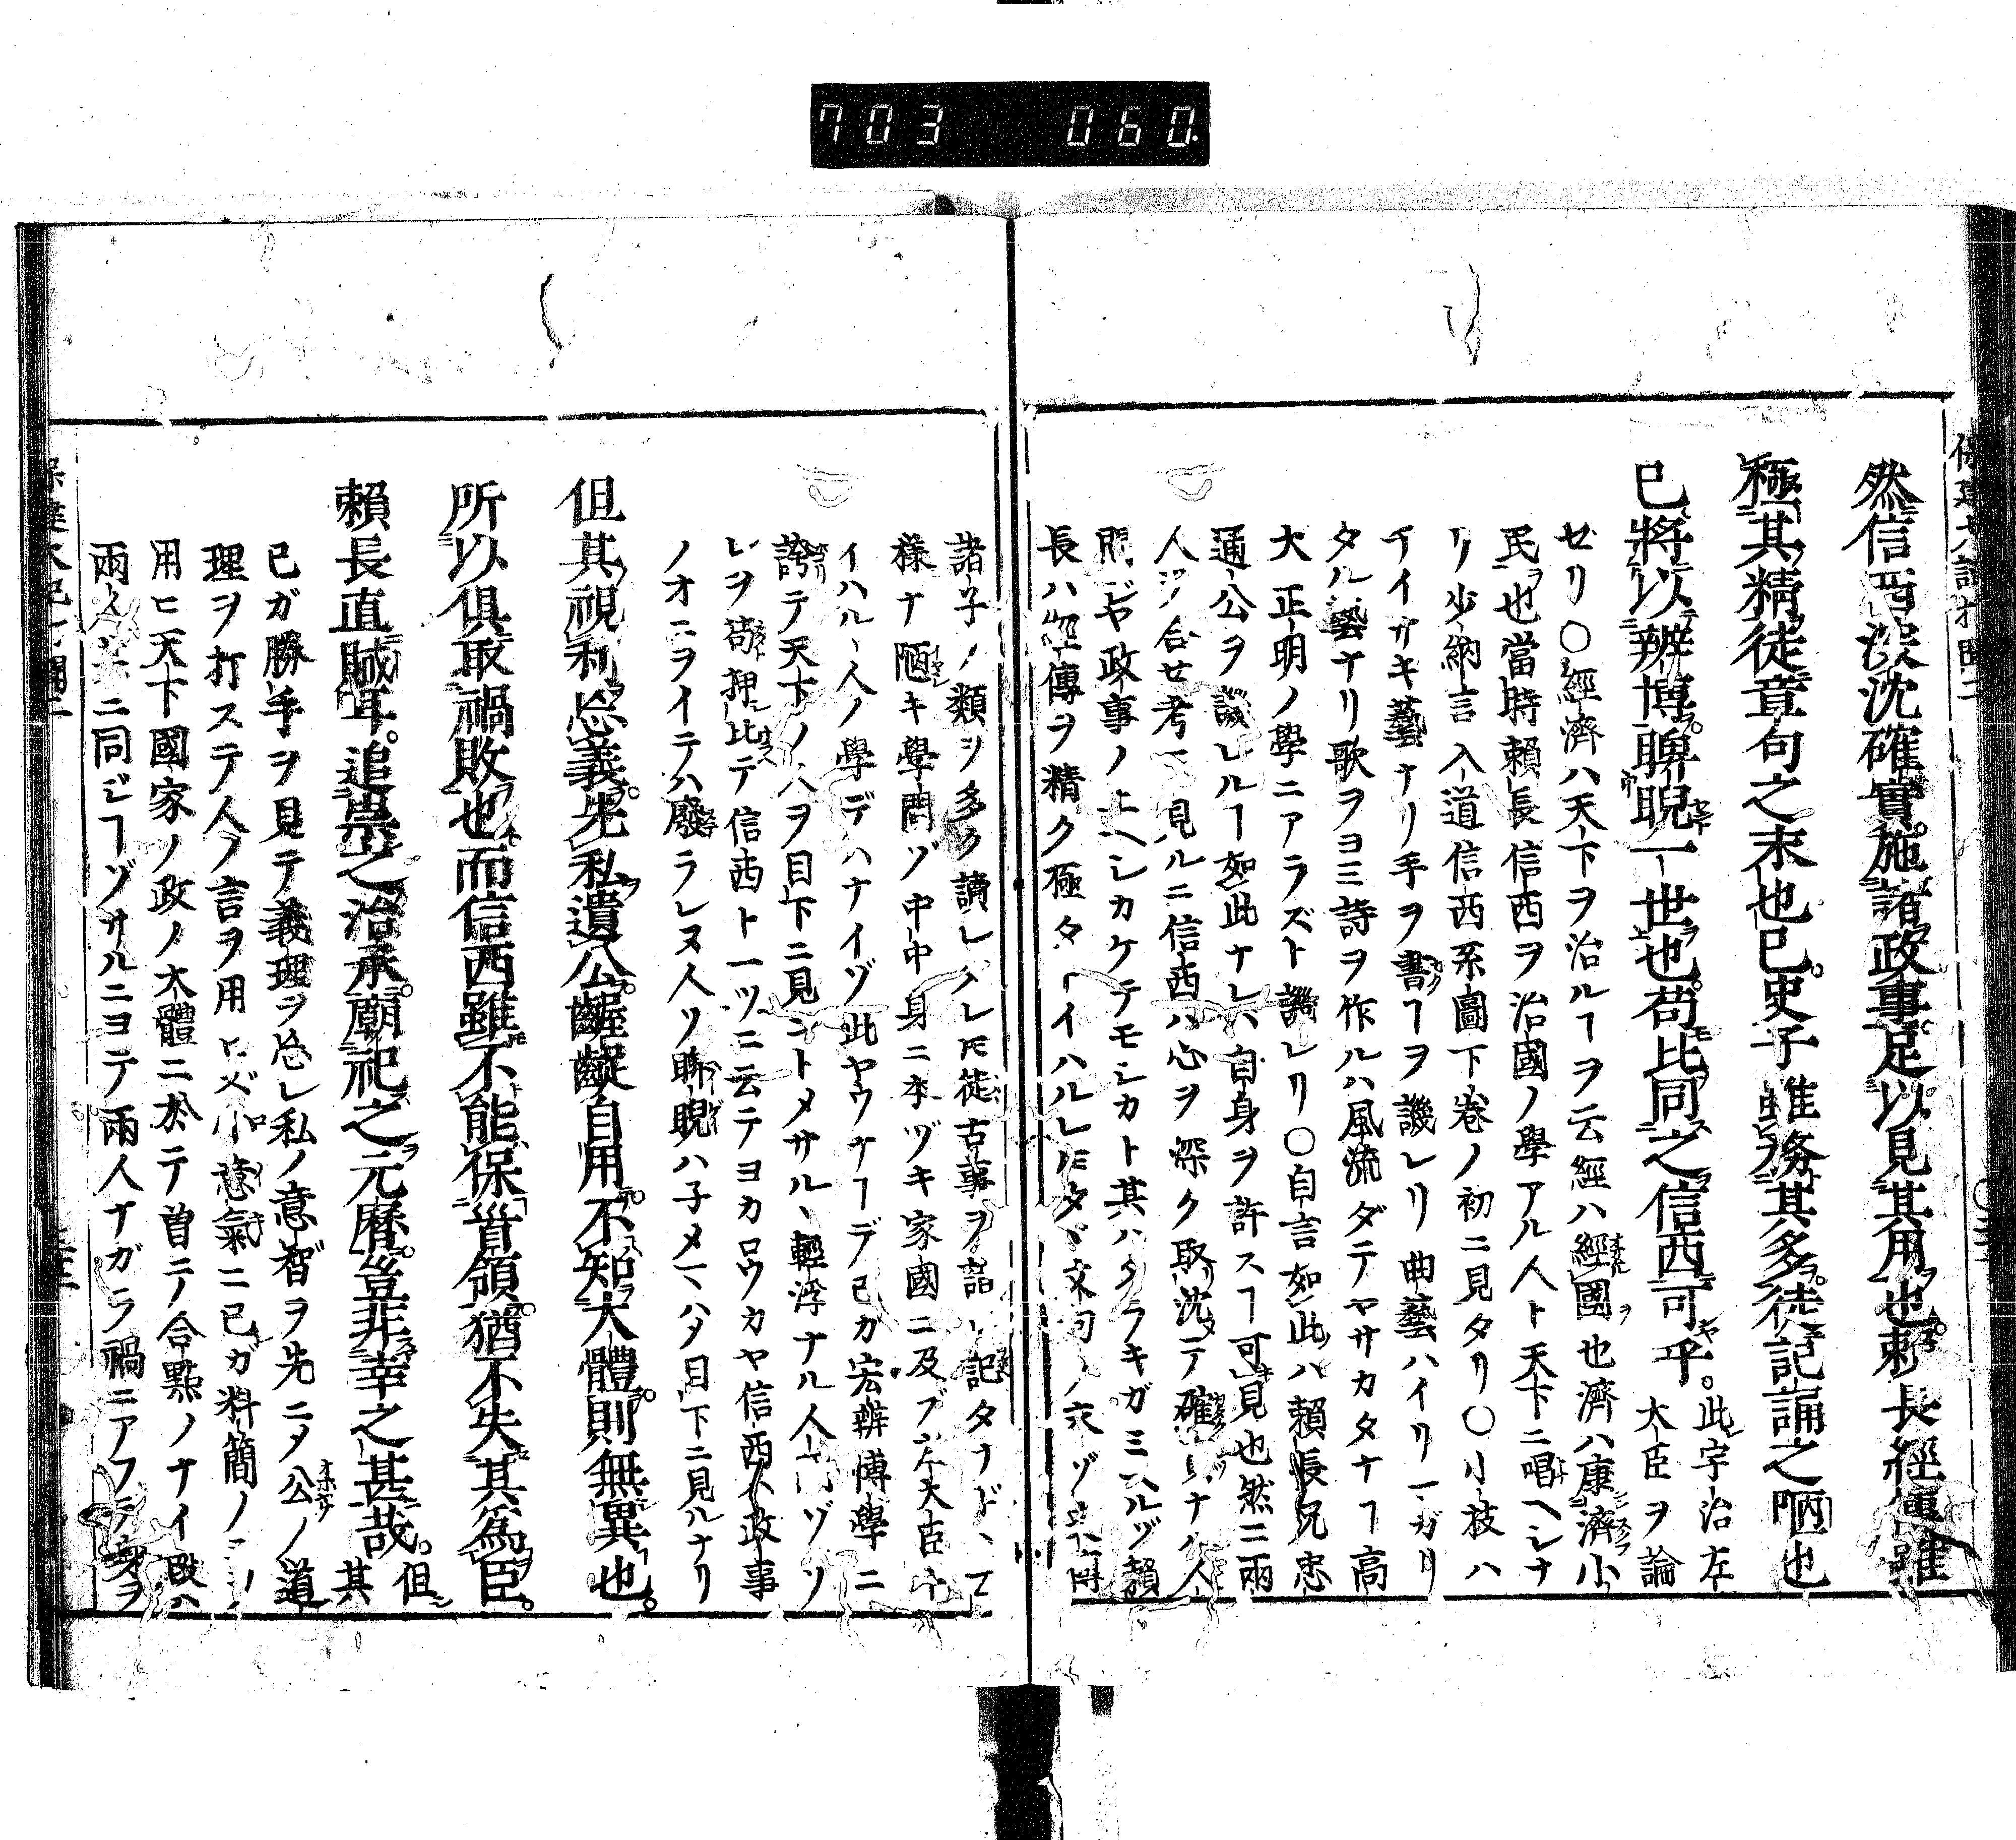 703 060
然信西深沈確實施諸政事足以見其用也賴長經傳雖
極其精徒章句之末也已史子雖務其多徒記誦之陋也
已將以辨博睥睨一世也苟比同之信西可乎。此宇治左
大臣ヲ論
ゼリ〇經濟ハ天下ヲ治ルヿヲ云經ハ經國也濟ハ康濟小
民也當時賴長信西ヲ治國ノ學アル人ト天下ニ唱ヘシナ
リ少納言入道信西系圖下卷ノ初ニ見タリ〇小技ハ
チイサキ藝ナリ手ヲ書ヿヲ譏レリ曲藝ハイリ
タル藝ナリ歌ヲヨミ詩ヲ作ルハ風流ダテヤサカタナヿ高
大正明ノ學ニアラズト譏レリ〇自言如此ハ賴長兄忠
通公ヲ譏レルヿ如此ナレハ自身ヲ許スヿ可見也然ニ兩
人ヲ合セ考ヘ見ルニ信西ハ心ヲ深ク取沈テ確ナル人
問ジヤ政事ノ上ヘシカケテモシカト其ハタラキガミヘルゾ賴
長ハ經傳ヲ精ク極タトイハルレドタヾ文句ノ末ゾ
諸子ノ類ヲ多ク讀レタレド徒古事ヲ記タナド
樣ナ陋キ學問ゾ中中身ニ本ヅキ家國ニ及ブ左大臣
イハルヽ人ノ學デハナイゾ此ヤウナヿデ己カ宏辨博學ニ
誇テ天下ノ人ヲ目下ニ見ントメサルヽ輕浮ナル人ゾソ
レヲ苟押比テ信西ト一ツニ云テヨカロウカヤ信西ハ政事
ノオニヲイテハ廢ラレヌ人ソ睥睨ハ子メマハシ目下ニ見ルナリ
但其視利忘義先私遺公齷齪自用不知大體則無異也。
所以俱取禍敗也而信西雖不能保首領猶不失其爲臣。
賴長直賊耳。追祟之治承。廟祀之元曆豈非幸之甚哉。但
其
己ガ勝手ヲ見テ義理ヲ忘レ私ノ意智ヲ先ニメ公ノ道
理ヲ打ステ人ノ言ヲ用ヒズ小意氣ニ己ガ料簡ノ
用ヒ天下國家ノ政ノ大體ニ於テ曽テノ合點ノナイ段ハ
兩人共ニ同ジヿゾサルニヨテ兩人ナガラ禍ニアフテ